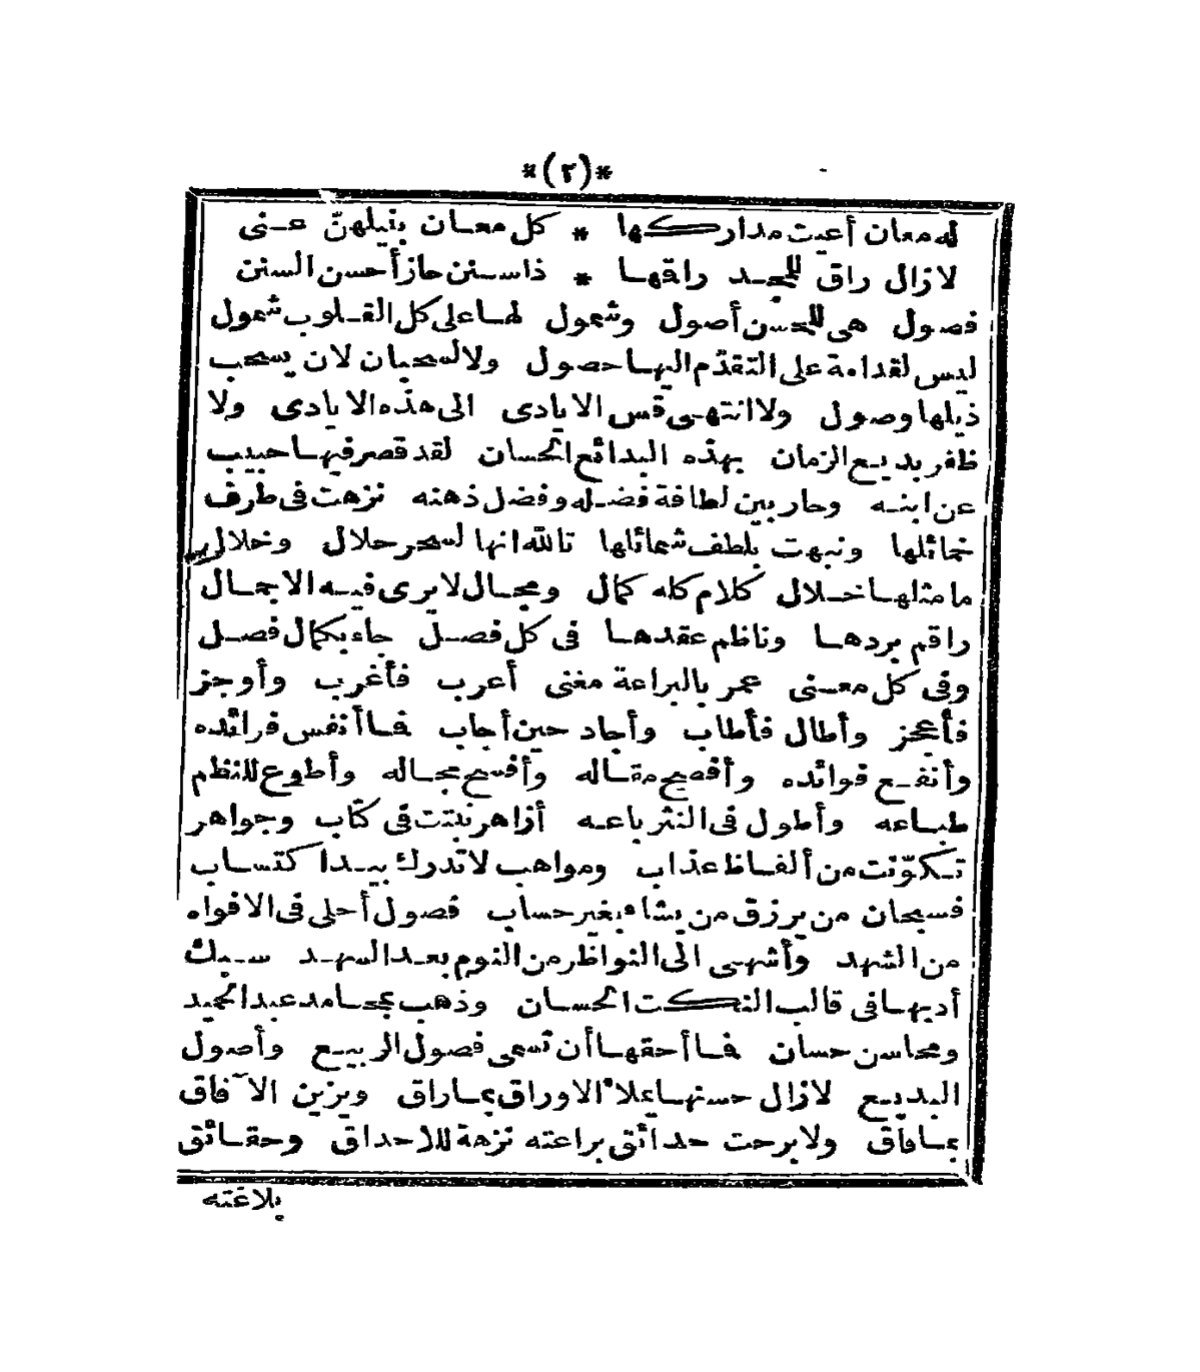 *(٢)*
له معان أعيت مداركها * كل معان بنيلهنّ عنى
لازال راق للمجد راقها * ذا سنن حاز أحسن السنن
فصول هى للحسن أصول وشمول لها على كل القلوب شمول
ليس لقدامة على التقدّم اليها حصول ولا لسحبان لان يسحب
ذيلها وصول ولا انتهى قس الايادى الى هذه الايادى ولا
ظفر بديع الزمان بهذه البدائع الحسان لقد قصر فيها حبيب
عن ابنه وحار بين لطافة فضله وفضل ذهنه نزهت فى طرف
خمائلها ونبهت بلطف شمائلها تالله انها لسحر حلال وخلال
ما مثلها خلال كلام كله كمال ومجال لا يرى فيه الاجمال
راقم بردها وناظم عقدها فى كل فصل جاء بكمال فصل
وفى كل معنى عمر بالبراعة مغنى أعرب فأغرب وأوجز
فأعجز وأطال فأطاب وأجاد حين أجاب فما أنفس فرائده
وأنفع فوائده وأفصح مقاله وأفسح مجاله وأطوع للنظم
طباعه وأطول فى النثر باعه أزاهر نبتت فى كتاب وجواهر
تكوّنت من ألفاظ عذاب ومواهب لا تدرك بيد اكتساب
فسبحان من يرزق من يشاء بغير حساب فصول أحلى فى الافواه
من الشهد وأشهى الى النواظر من النوم بعد السهد سبك
أديبها فى قالب النكت الحسان وذهب بمحامد عبد الحميد
ومحاسن حسان فما أحقها أن تسمى فصول الربيع وأصول
البديع لازال حسنها يملأ الاوراق بما راق ويزين الآفاق
بما فاق ولا برحت حدائق براعته نزهة للاحداق وحقائق
بلاغته